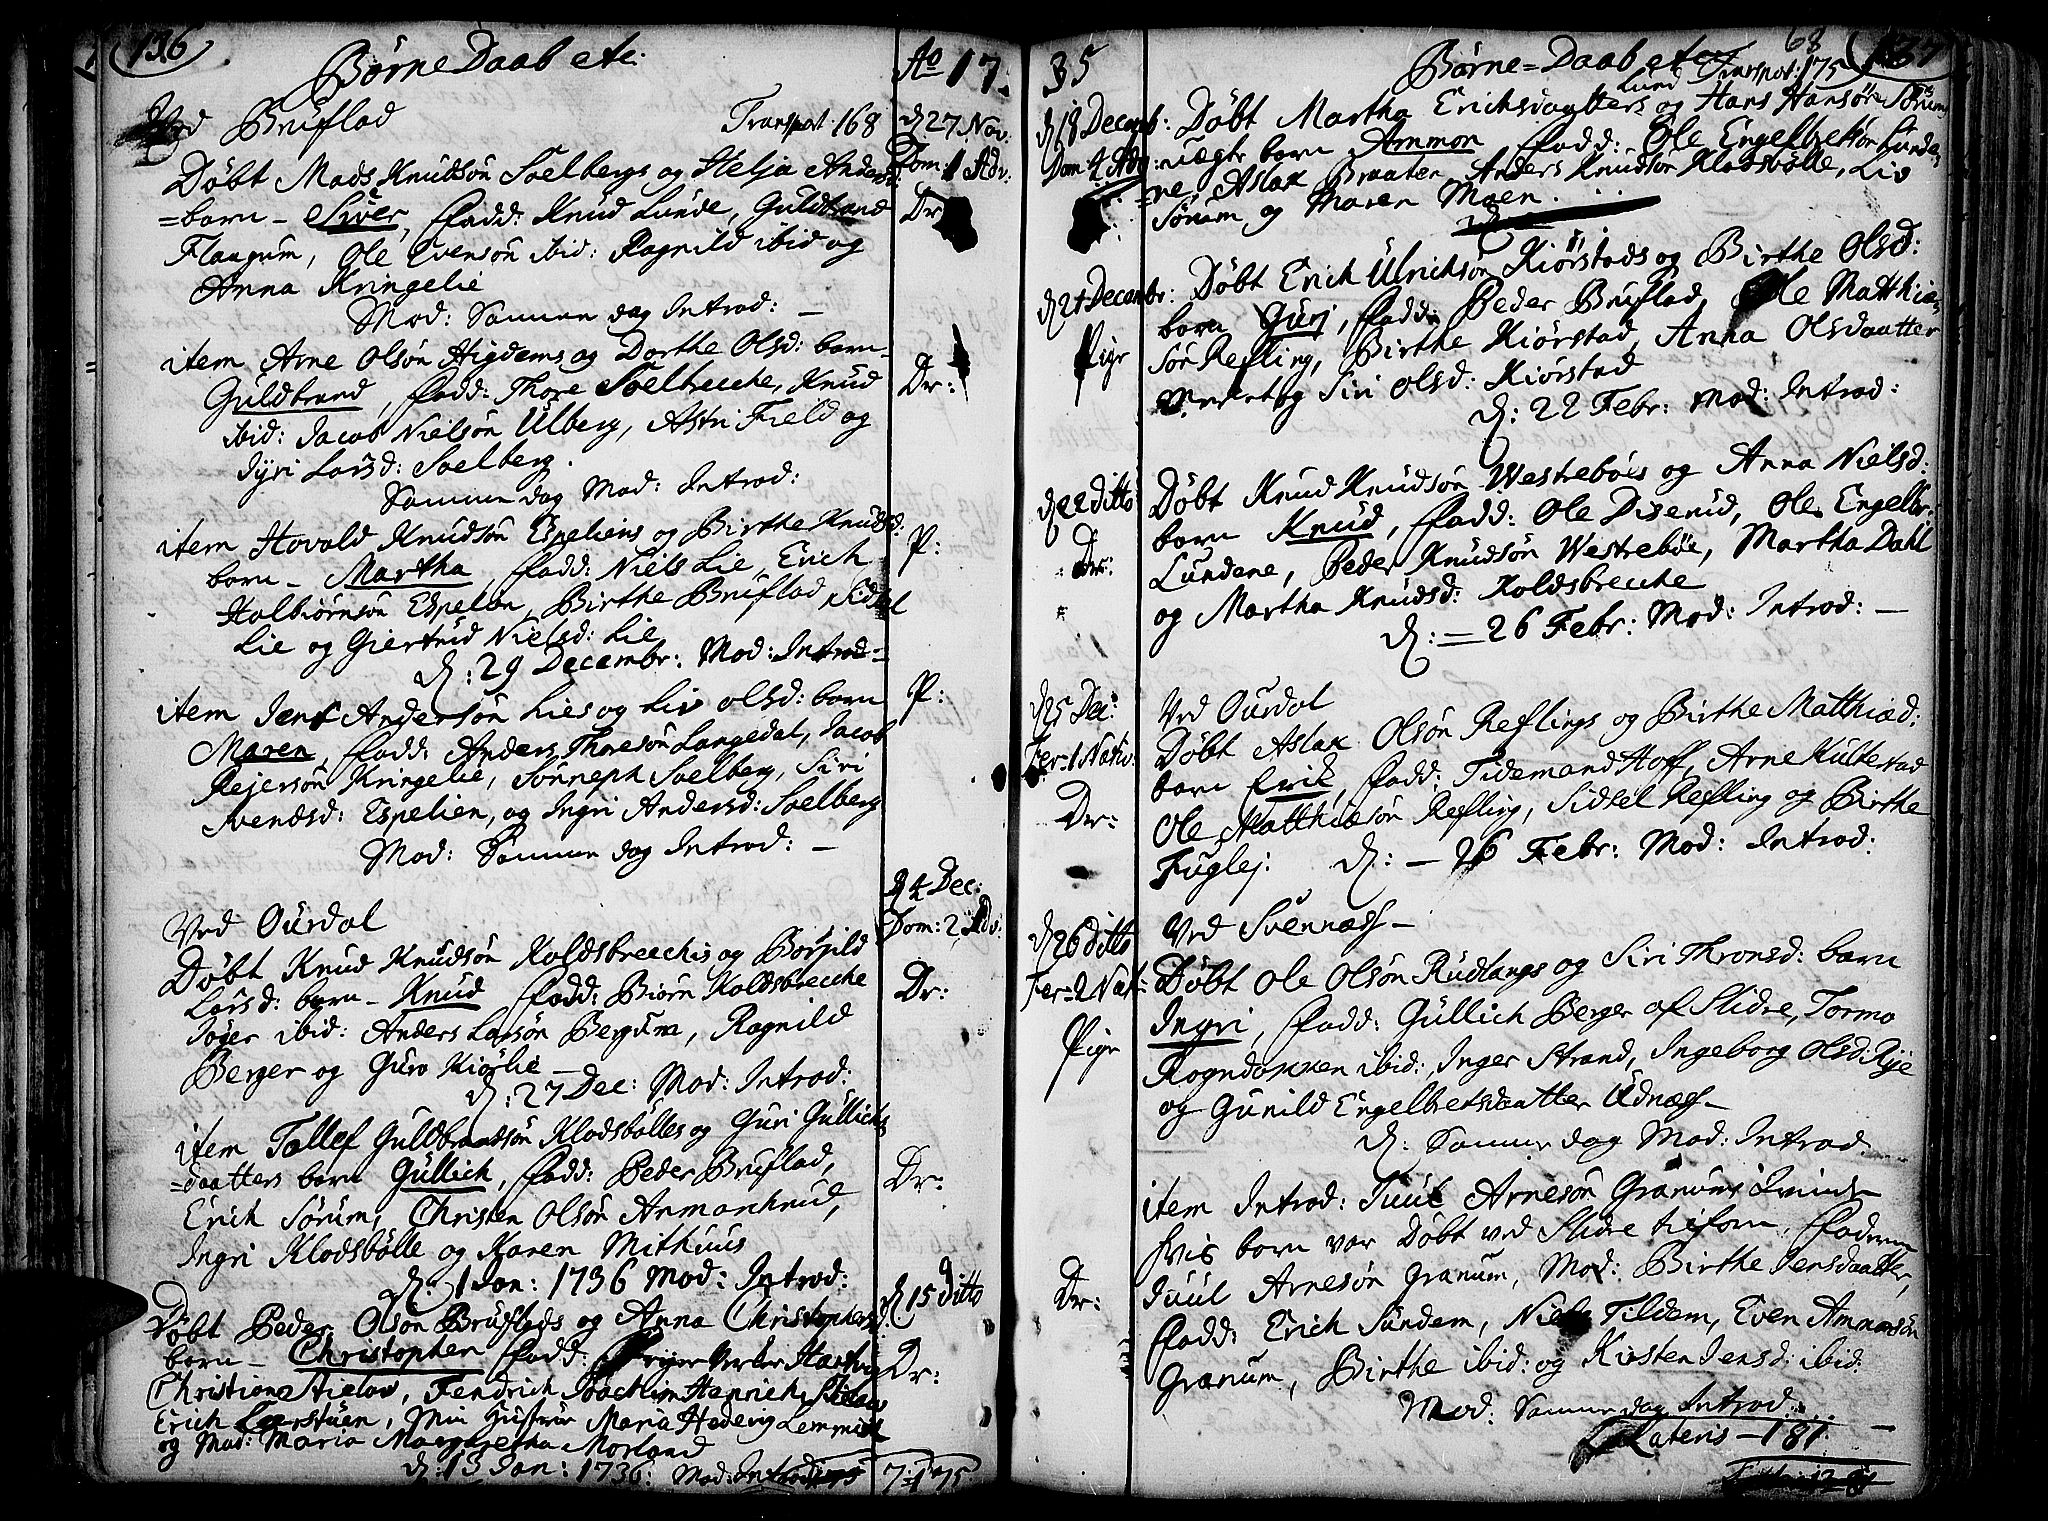 136
Børne Daab etc:
Ao 17.
Ved Bruflad Transport: 168
d 27 Nov:
Dom: 1 Adv:
Døbt Mads Knudsøn Soelbergs og Helja Anders
=barn - Siver, fadd: Knud Lunde, Guldbrand
Dr:
Flaugum, Ole Evensøn ibid: Ragnild ibid og
Anna Kringelie
Mod: Samme dag Introd: -
item Arne Olsøn Higdems og Dorthe Olsd: barn
Guldbrand, fadd: Thore Soelbrecke, Knud
Dr:
ibid: Jacob Nielsøn Ulberg, Astri Field og
Jyri Larsd: Soelberg.
Samme dag Mod: Introd:
item Hovald Knudsøn Espeliens og Birthe Knudsd:
P:
barn - Martha, fadd: Niels Lie, Erich
Halbiørnsøn Espelien, Birthe Bruflad, Sidsel
Lie og Giertrud Nielsd: Lie
d: 29 Decembr: Mod: Introd:
item Jens Andersøn Lies og Liv Olsd: barn
P:
Maren, fadd: Anders Thoresøn Langedal, Jacob
Rejersøn Kringelie, Sønneph Soelberg, Siri
Svendsd: Espelien, og Ingri Andersd: Soelberg
Mod: Samme dag Introd: -
d 4 Dec:
Dom: 2 Adv:
Ved Ourdal
Døbt Knud Knudsøn Koldsbrechis og Borgild
Larsd: barn - Knud, fadd: Biørn Koldsbrecke
Dr:
ibid: Anders Larsøn Bergum, Ragnild
Berger og Guro Kiørlie -
d: 27 Dec: Mod: Introd:
item Tollef Guldbrandsøn Klodsbølles og Guri Gullichs
=daatters barn Gullich, fadd: Peder Bruflad,
Dr:
Erich Sørum, Christen Olsøn
Ingri Klodsbølle og Karen Mithuus
d: 1 Jan: 1736 Mod: Introd:
d 15 ditto
Døbt Peder Olsøn Bruflads og Anna Christophersd:
barn - Christopher fadd: Hartvig
Dr:
Christian Fendrich Joachim Henrich
Erich Min Hustrue Maria Hedevig Lemmich
og Mad: Maria Margaretha Morland
d: 13 Jan: 1736: Mod: Introd:
7 = 175
35
Børne=Daab etc
68
137
Transport: 175
d 18 Decemb:
Dom: 4 Adv:
Lund
Døbt Martha Erichsdaatters og Hans Hansøn Sørums
uægte barn Ammon fadd: Ole Engelbretsøn Lunde=
=ne, Aslak Braaten, Anders Knudsøn Klodsbølle, Liv
Sørum og Maren Moen.
d 21 Decembr:
Døbt Erich Ulrichsøn Kiørstads og Birthe Olsd:
barn Gurj, fadd: Peder Bruflad, Ole Matthiæ=
Pige
søn Refling, Birthe Kiørstad, Anna Olsdaatter
og Siri Olsd: Kiørstad
d: 22 Febr: Mod: Introd:
d 22 ditto
Døbt Knud Knudsøn Westrebøes og Anna Nielsd:
barn Knud, fadd: Ole Diserud, Ole Engelbr:
Dr:
Lundene, Peder Knudsøn Westrebøe, Martha Dahl
og Martha Knudsd: Koldsbrecke
d: - 26 Febr: Mod: Introd: -
d 25 Dec:
Fer: 1 Nativ:
Ved Ourdal
Døbt Aslak Olsøn Reflings og Birthe Matthiæd:
barn Erik, fadd: Tidemand Hoff, Arne Kultestad
Dr:
Ole Matthiæsøn Refling, Sidsel Refling og Birthe
Fuglej: d: - 26 Febr: Mod: Introd:
d 26 ditto
Fer: 2 Nat:
Ved Svennæs -
Døbt Ole Olsøn Rudlangs og Siri Thronsd: barn
Pige
Ingri, fadd: Gullich Berger af Slidre, Tormo
Rogndokken ibid: Inger Strand, Ingeborg Olsd: Rye
og Gunild Engelbretsdaatter Udnæs -
d: Samme dag Mod: Introd.
item Introd: Juul Arnesøn Granums Qvinde
hvis barn var Døbt ved Slidre tilforn, faderen
Dr:
Juul Arnesøn Granum, Mod: Birthe Jensdaatter,
fadd: Erich Sundem, Niels Tildem, Even Ammonsøn
Granum, Birthe ibid: og Kirsten Jensd: ibid:
Mod: Samme dag Introd:
Lateris - 181.